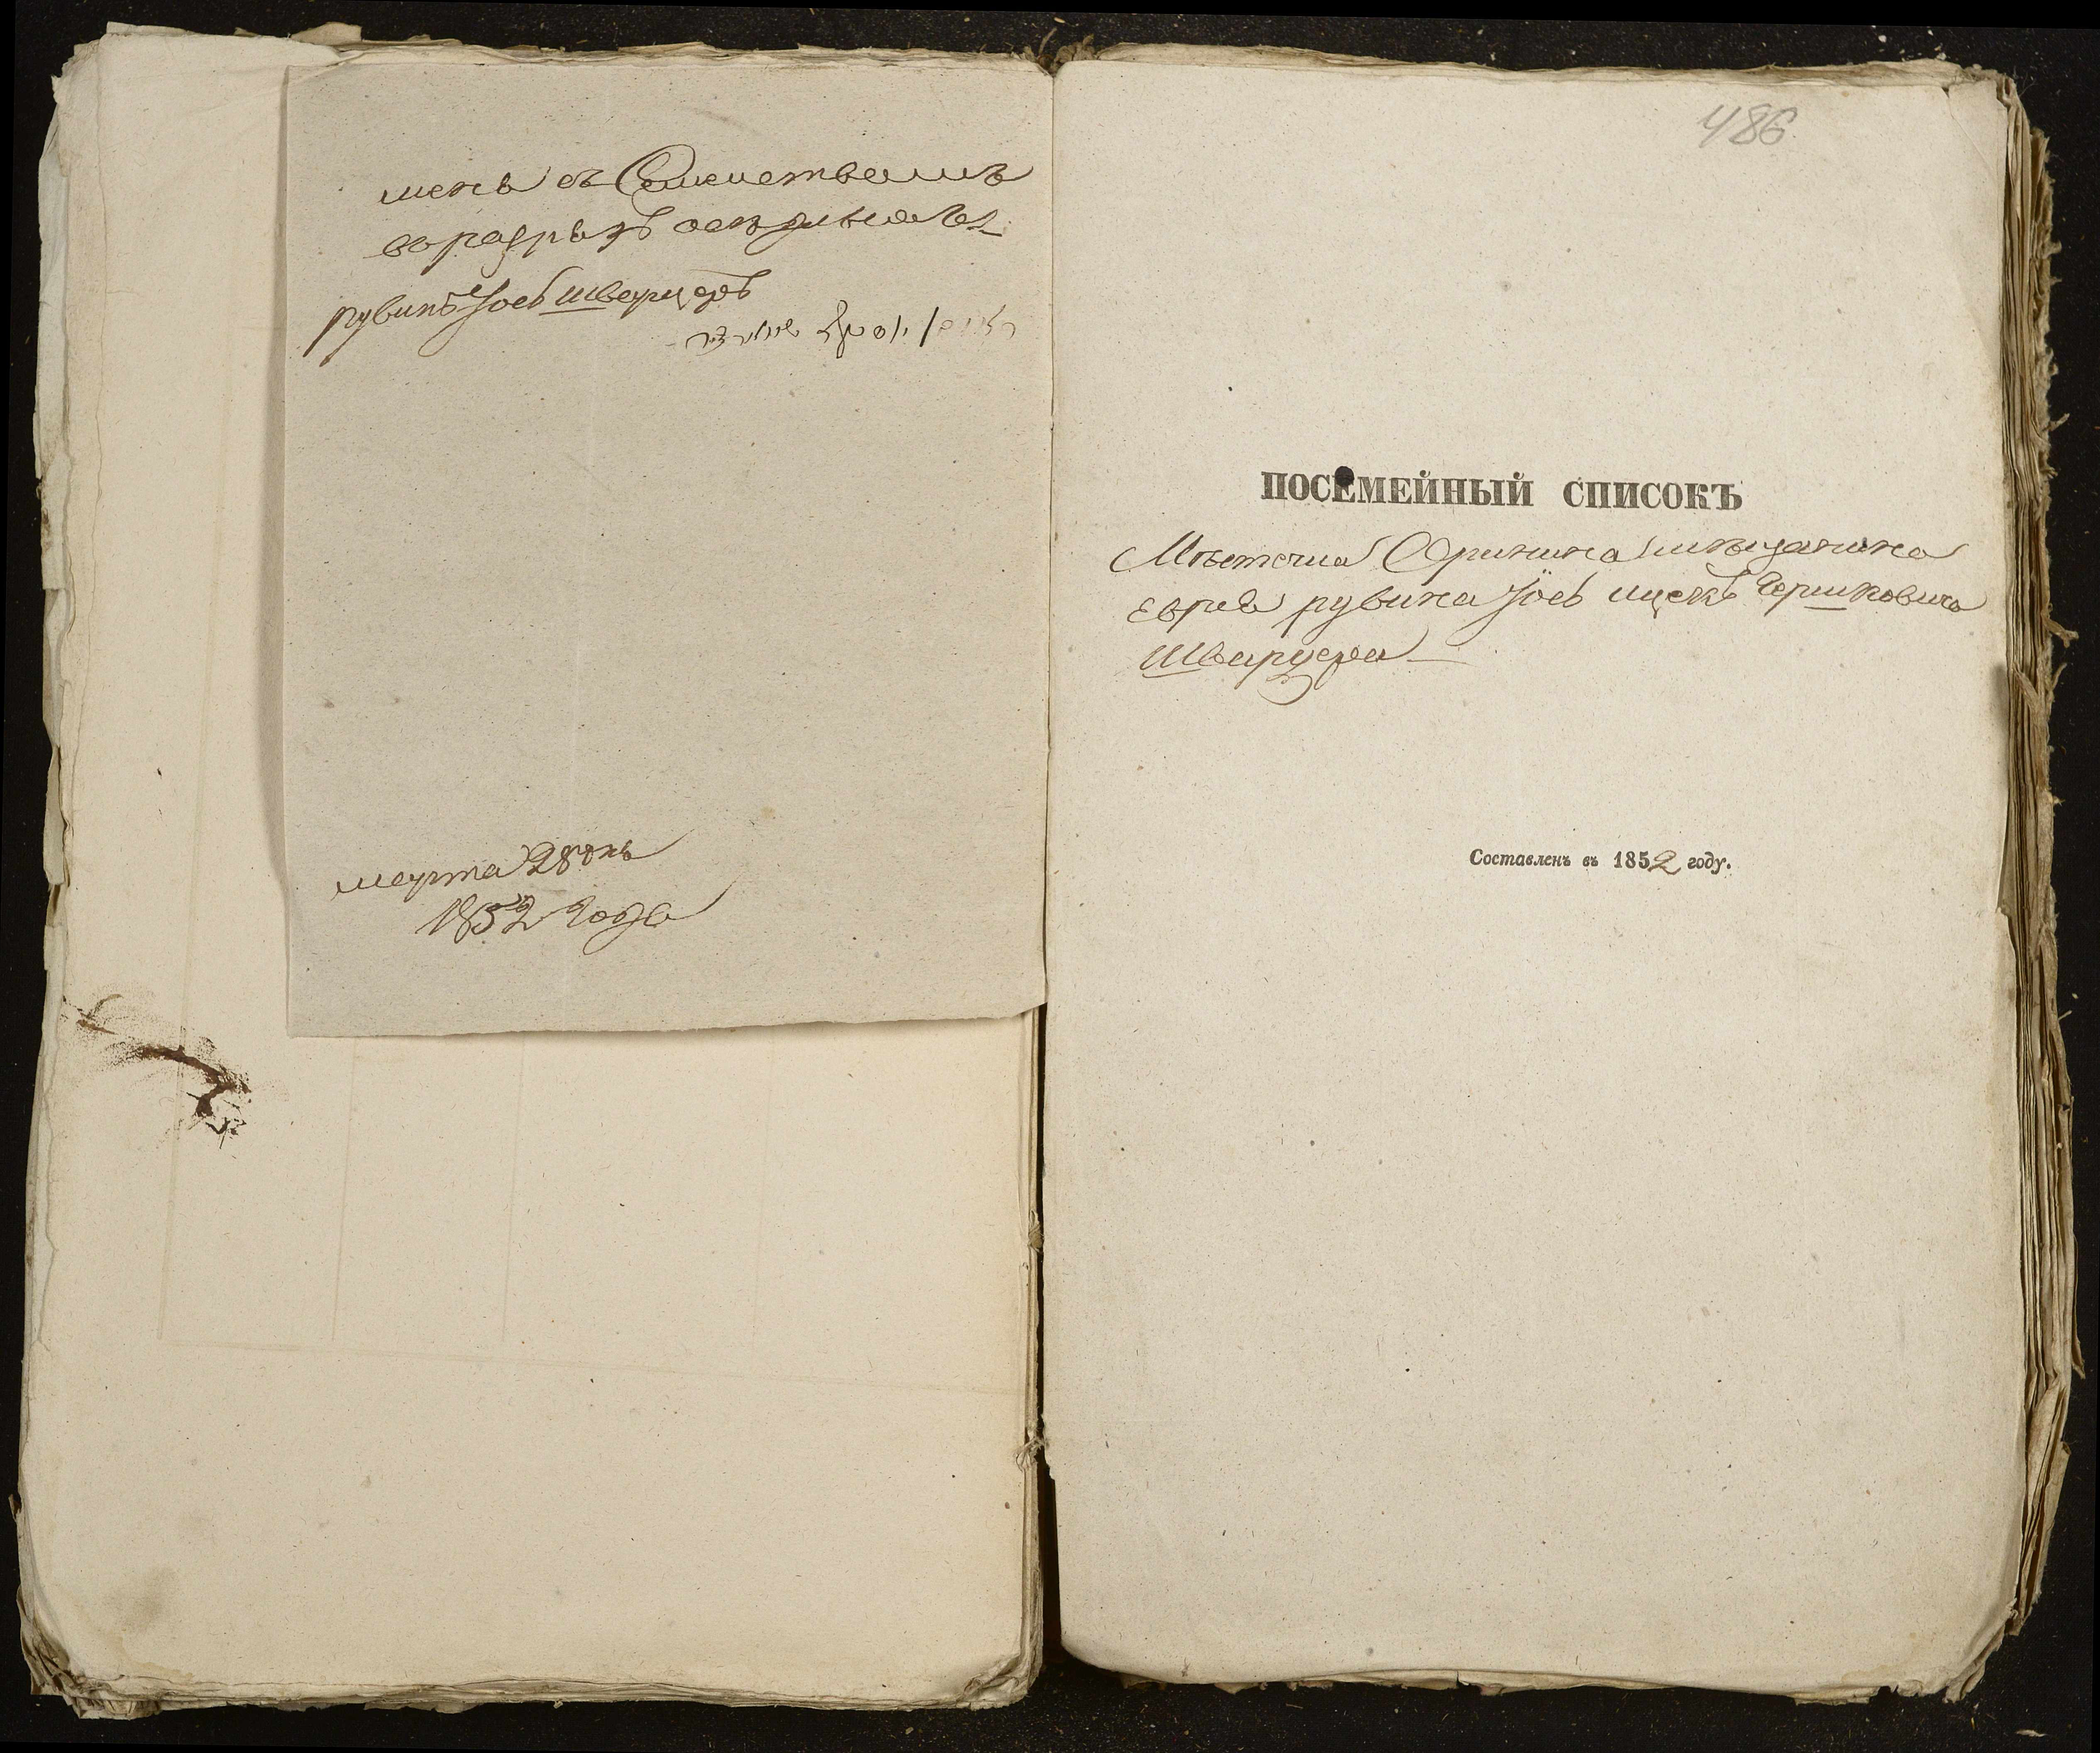 мень съ Семействомъ
въ разрядъ осѣдлыхъ
рувинъ Іось Шварцеръ
марта 28 дня
1852 года
486
ПОСЕМЕЙНЫЙ СПИСОКЪ
Мѣстечка Оринина мѣщанина
еврея рувина Іось ицекъ Гершковича
Шварцера
Составленъ въ 1852 году.